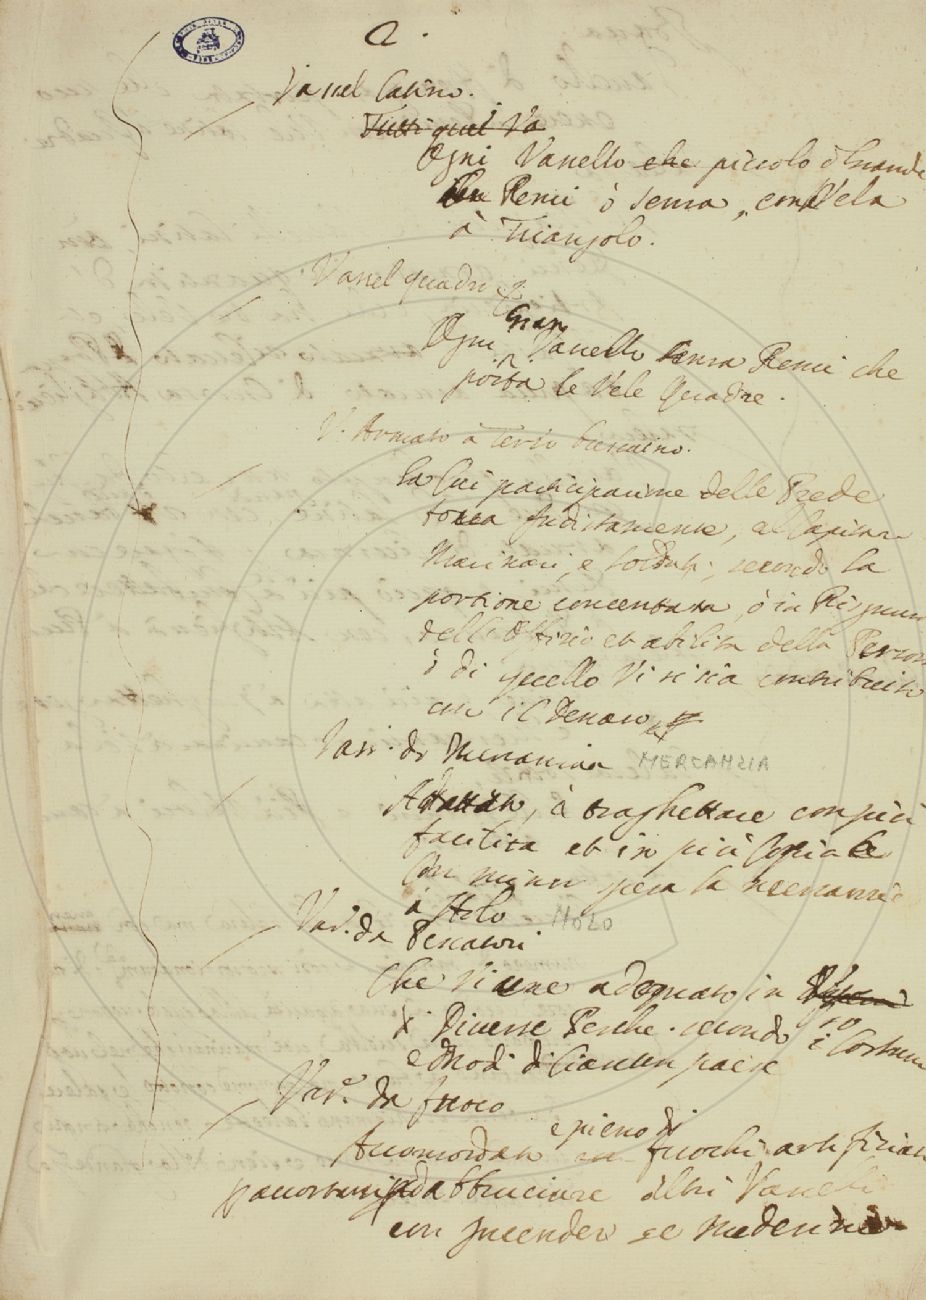 2.
Vassel Latino.
Tutti quei Va
Ogni Vassello che piccolo ò Grande
Remi ò senza, con Vela
à Triangolo.
Vassel quadro
Gran
Ogni Vassello senza Remi che
porta le Vele Quadre.
V. Armato à
La Cui participatione delle Prede
tocca, al Capitan
Marinari, e Soldati, secondo la
portione concertata, ò in
dell Offitio et abilita della
ò di quello Vi si sia contribuito
con il Denaro
Vass. di Mercanzia MERCANZIA
Adattato, à traghettare con più
facilita et in più Copia le
Con minor la mercanzie
à Molo MOLO
Vas. da Pescatori
Che Viene adeguato in
Diverse Pesche secondo i Costumi
e Modi di Ciascun paese
Vas. da fuoco
e pieno di
Accomodato fuochi artifiziati
per abbruciare altri Vasselli
con incender se medesimo